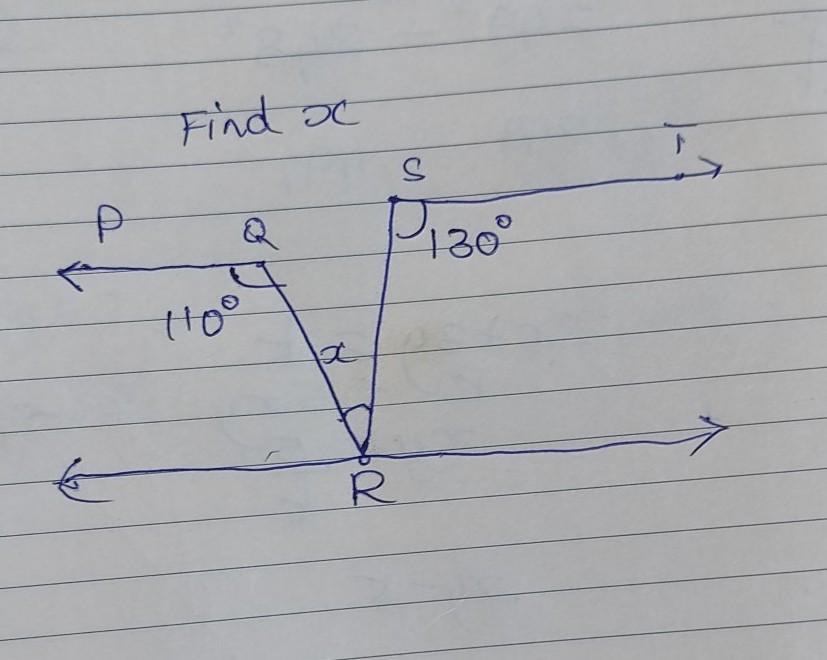 Find x
S T
P Q 130°
110°
x
R